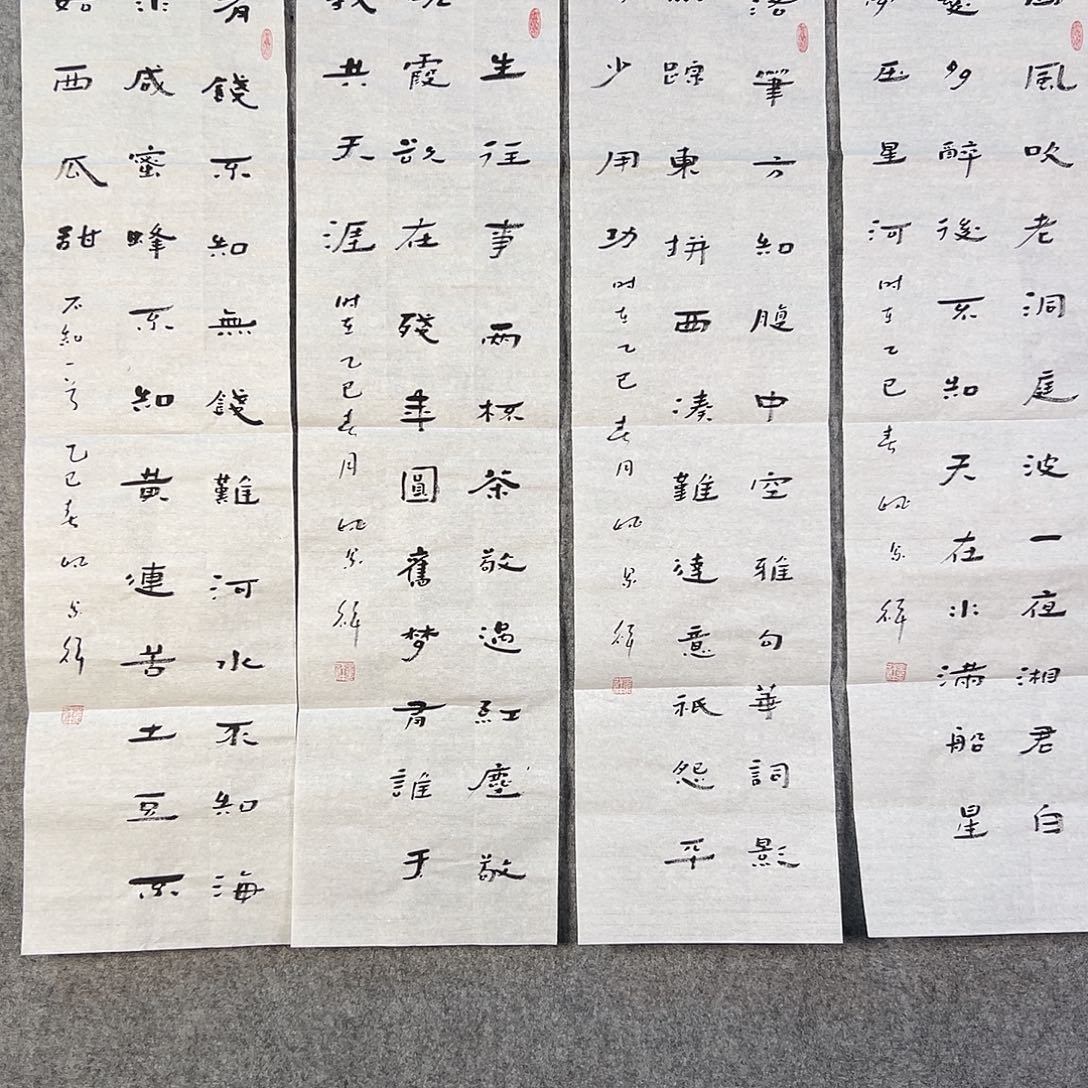 風吹老洞庭波一夜湘君白
多醉後不知天在水滿船星
压星河 时在乙巳春
落筆方知腹中空雅句華詞影
蹤東拼西凑難達意祇怨平
少用功 时在乙巳春月
生往事兩杯茶敬過紅塵敬
霞欲在殘年圓舊梦有誰于
共天涯 时在乙巳春月
有錢不知無錢難河水不知海
水咸蜜蜂不知黄連苦土豆不
西瓜甜 不知一首 乙巳春